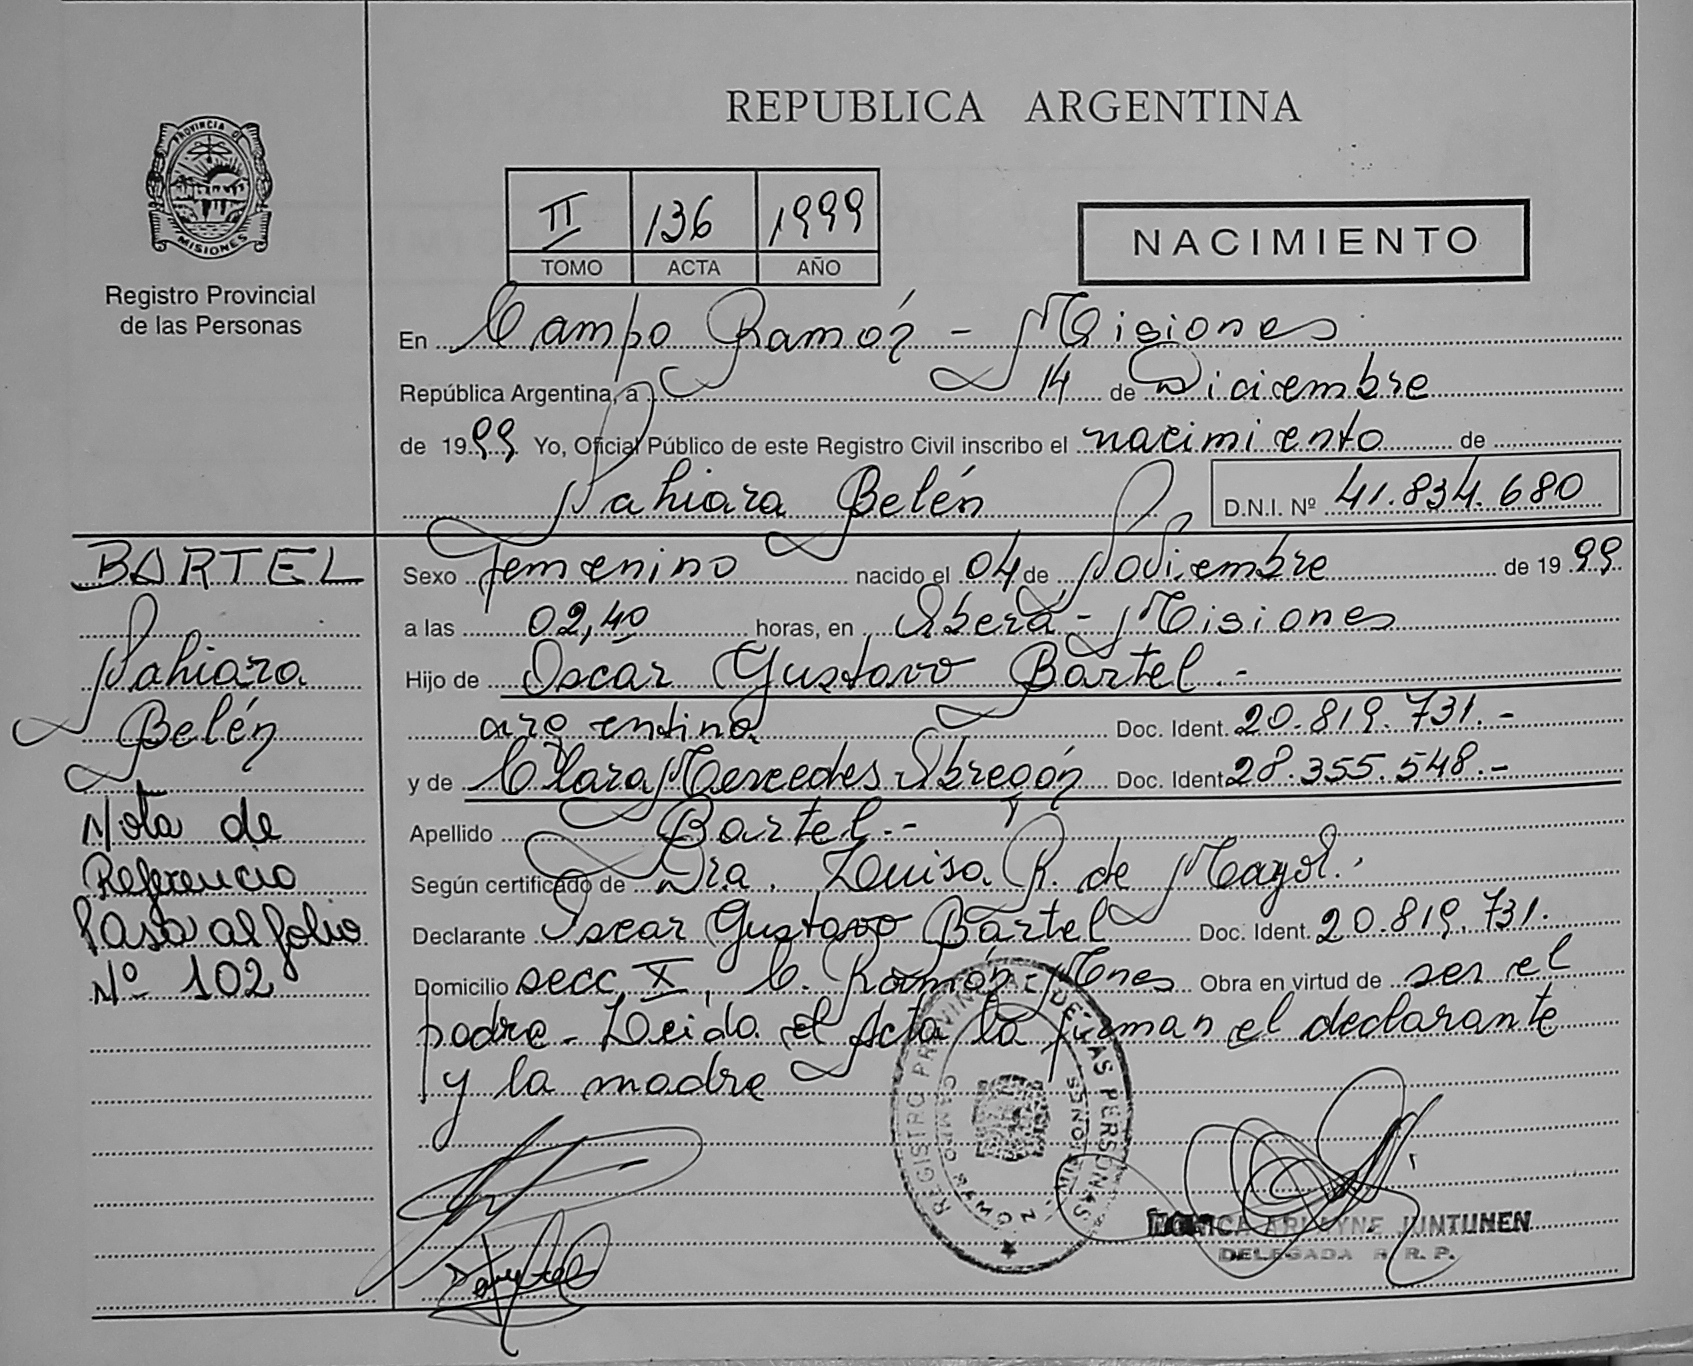 PROVINCIA DE
MISIONES
Registro Provincial
de las Personas
REPUBLICA ARGENTINA
II 136 1999
TOMO ACTA AÑO
NACIMIENTO
En Campo Ramón - Misiones
República Argentina, a 14 de Diciembre
de 1999 Yo, Oficial Público de este Registro Civil inscribo el nacimiento de
Nahiara Belén D.N.I. Nº 41.834.680
BARTEL
Nahiara
Belén
Nota de
Referencia
Pasa al folio
Nº 102
Sexo femenino nacido el 04 de Noviembre de 1999
a las 02,40 horas, en Oberá - Misiones
Hijo de Oscar Gustavo Bartel.-
argentino Doc. Ident. 20.819.731.-
y de Clara Mercedes Obregón Doc. Ident. 28.355.548.-
Apellido Bartel.-
Según certificado de Dra. Luisa R. de Mayol.
Declarante Oscar Gustavo Bartel Doc. Ident. 20.819.731.
Domicilio secc. X, C. Ramón - Mnes Obra en virtud de ser el
padre - Leida el Acta la firman el declarante
y la madre
REGISTRO PROVINCIAL DE LAS PERSONAS
CAMPO RAMON - MISIONES
MONICA ARLAYNE JUNTUNEN
DELEGADA R. R. P.